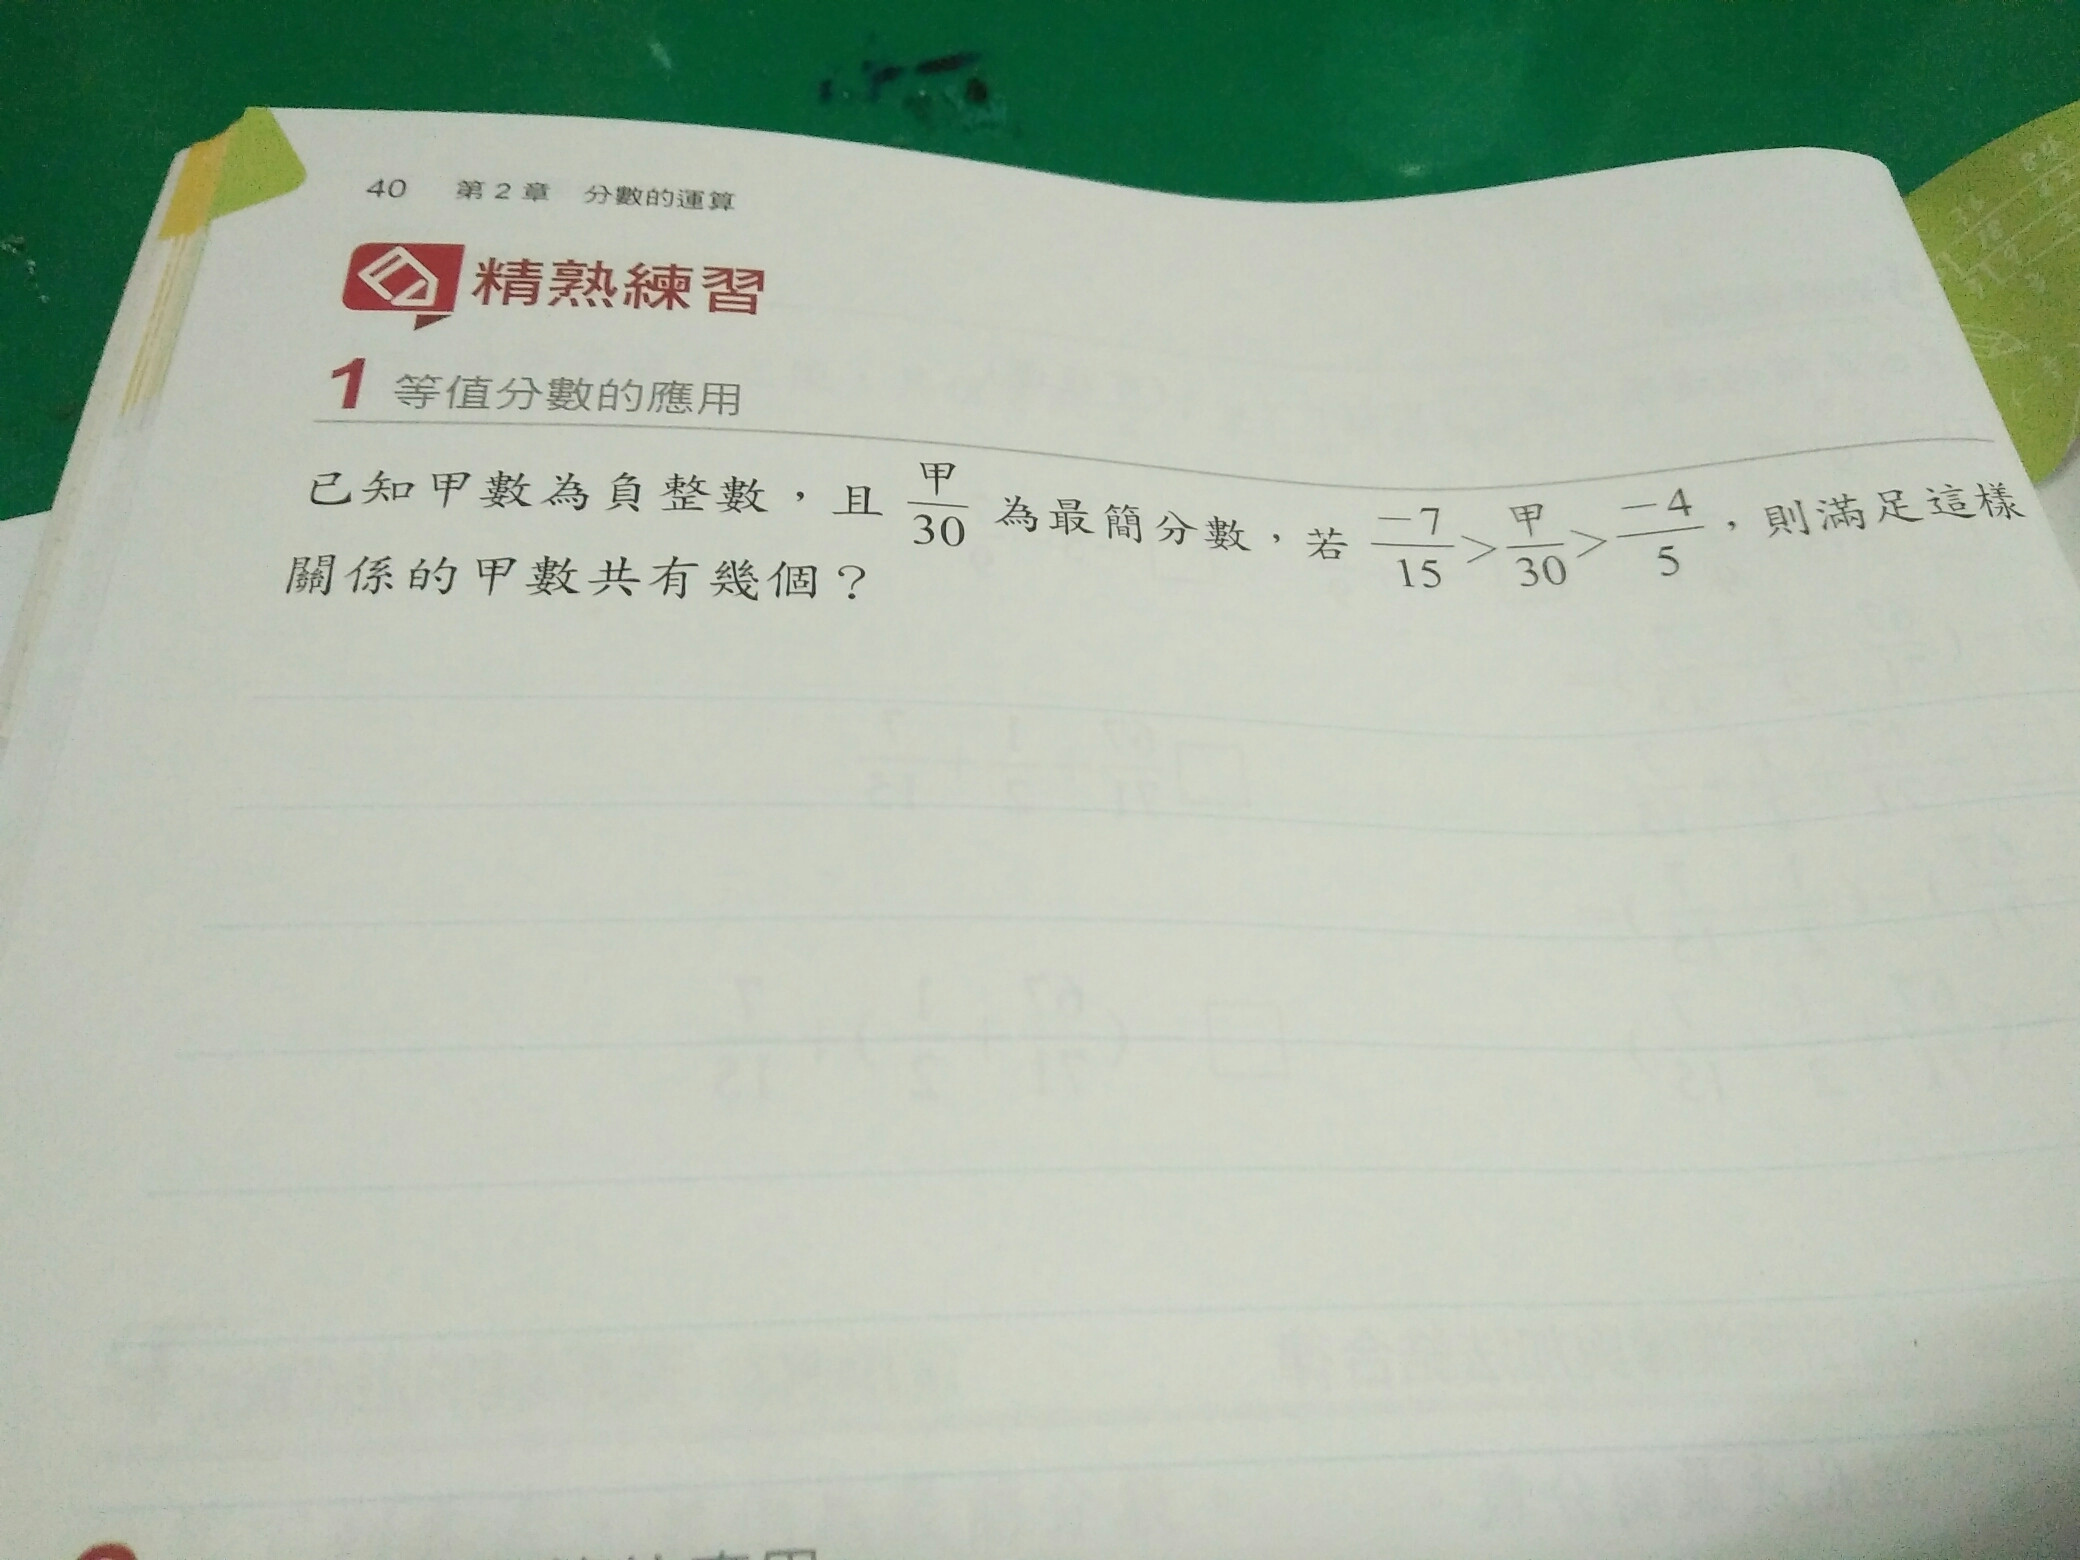 40 第2章 分數的運算
精熟練習
1 等值分數的應用
已知甲數為負整數，且 甲/30 為最簡分數，若 -7/15 > 甲/30 > -4/5，則滿足這樣
關係的甲數共有幾個？